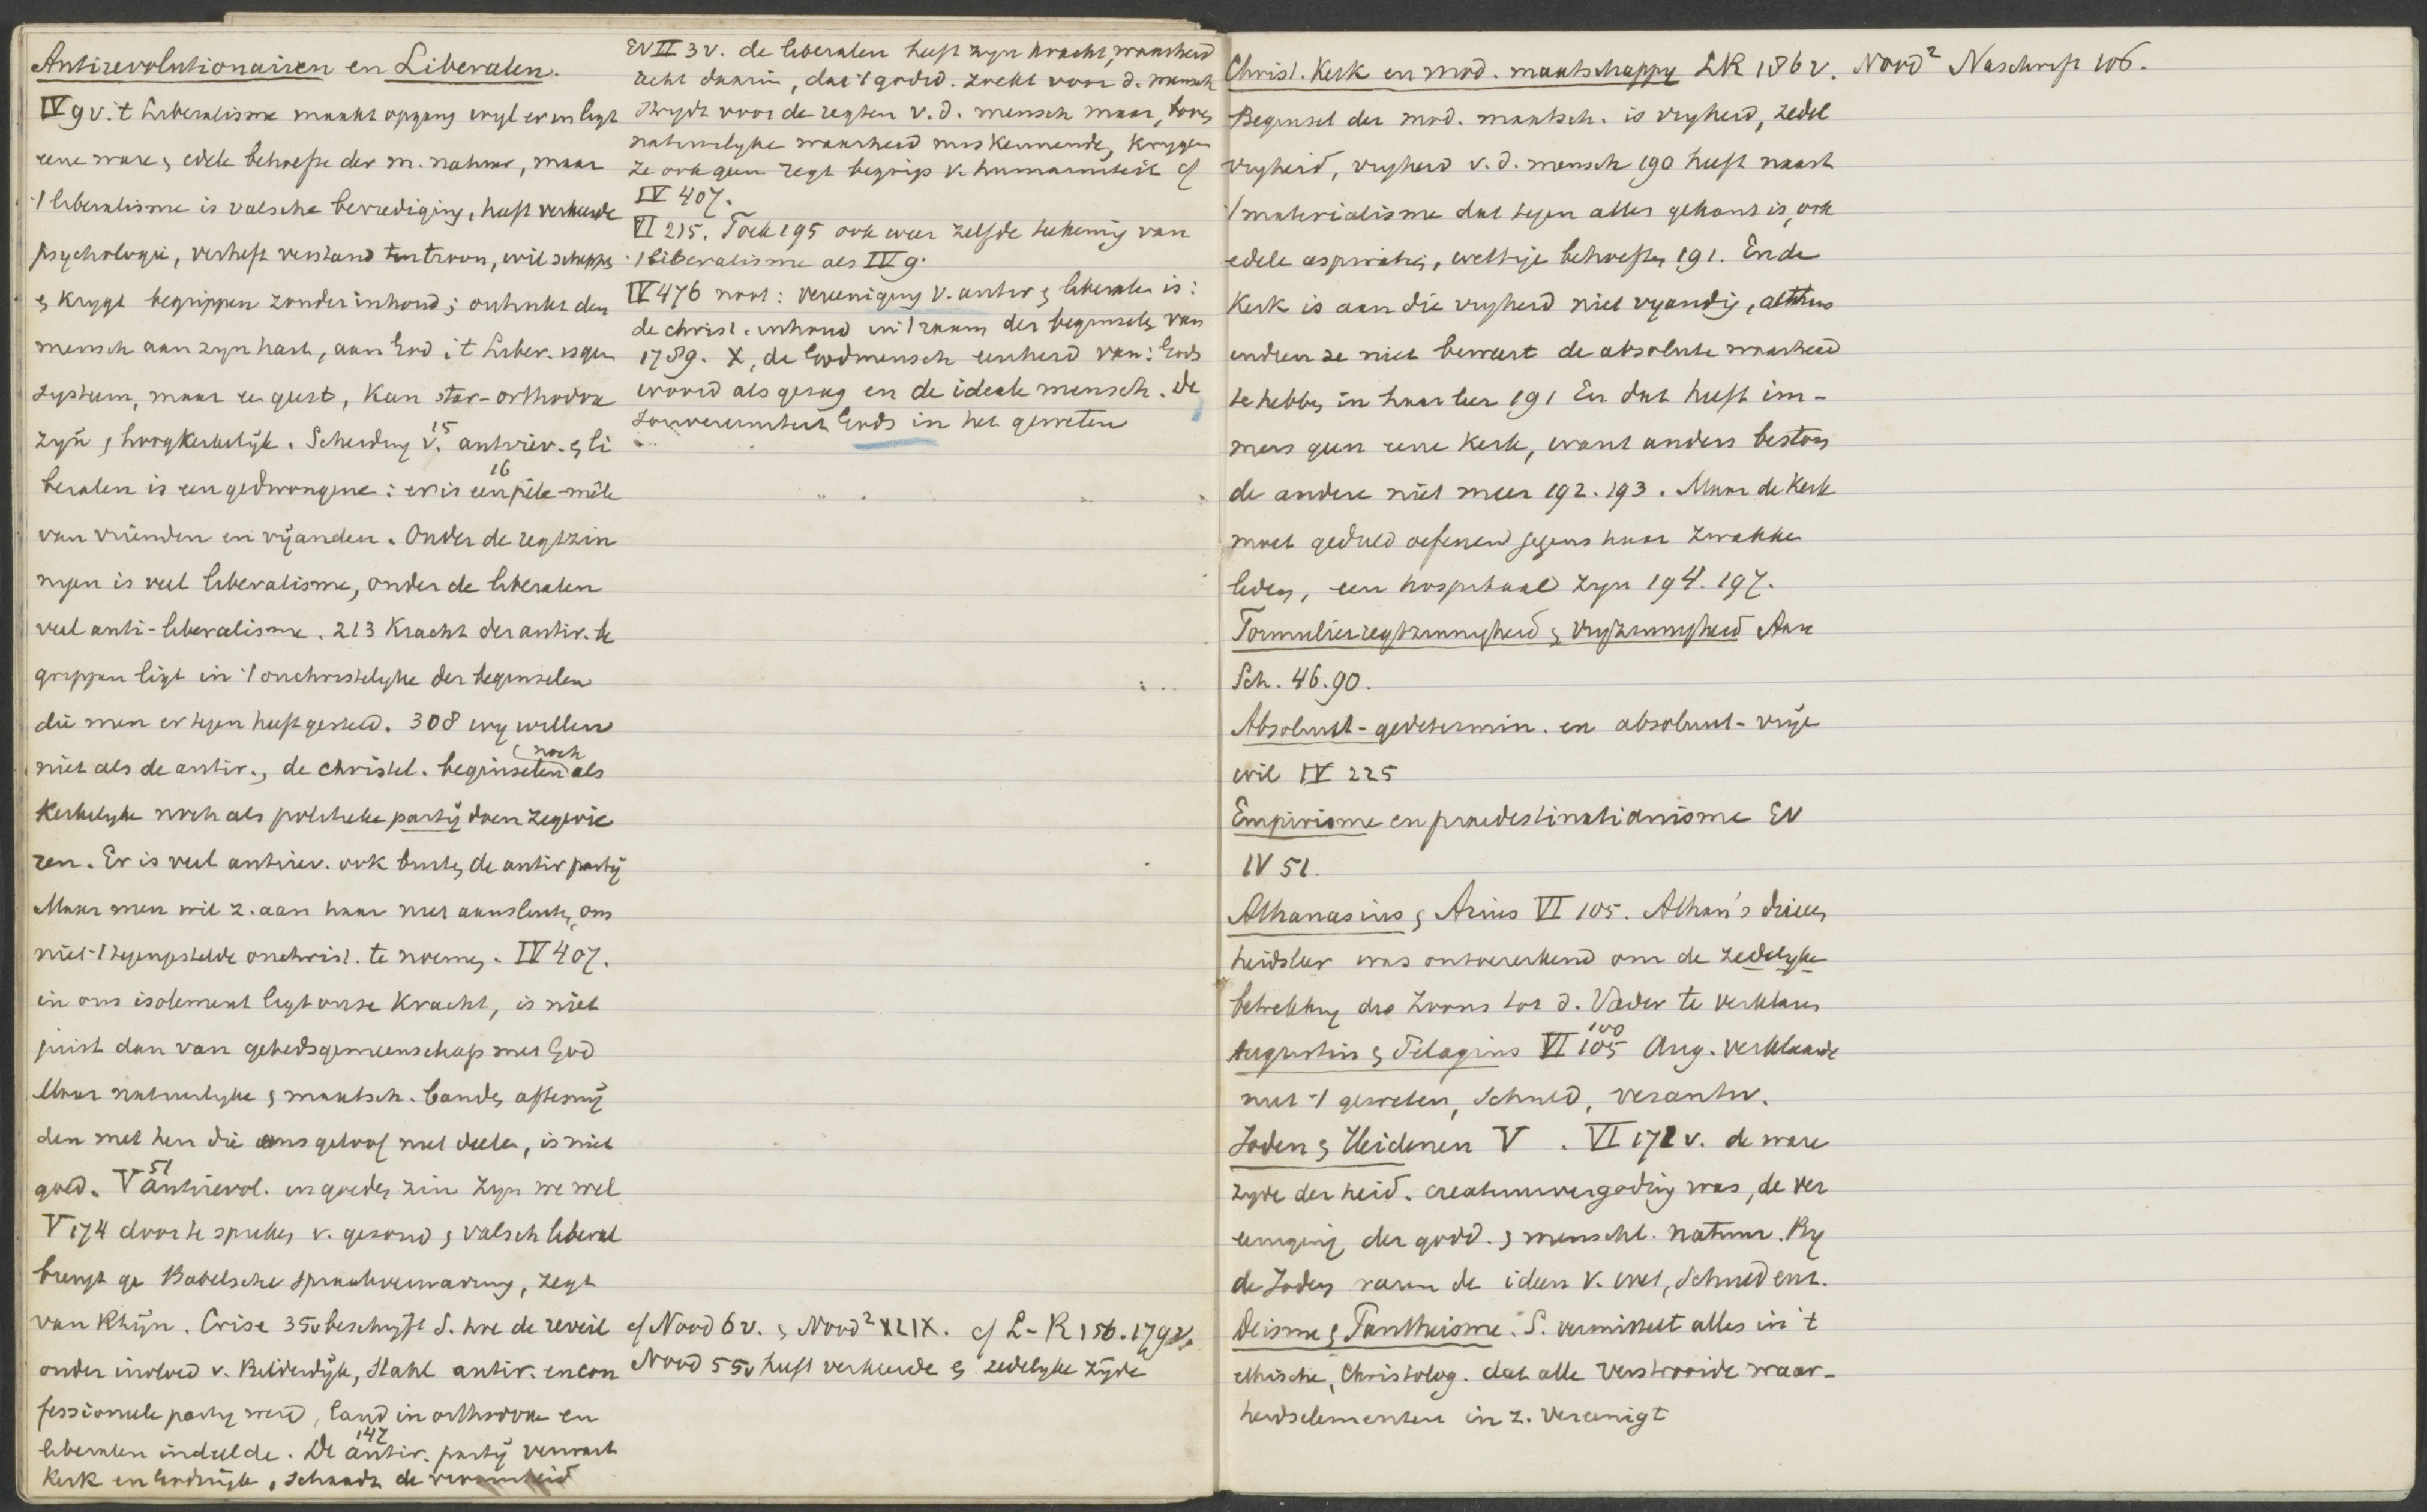 Antirevolutionairen en Liberalen.
IV 9 v. 't Liberalisme maakt opgang wyl er in ligt
eene ware & edele behoefte der m. natuur, maar
't liberalisme is valsche bevrediging, heeft verkeerde
psychologie, verheft verstand ten troon, wil scheppen
& krygt begrippen zonder inhoud; ontrukt den
mensch aan zyn hart, aan God; 't Liber. is geen
systeem, maar een geest, kan star-orthodox
zyn, hoogkerkelijk. Scheiding v. 15 antirev. & li
beralen is een gedwongene: 16 er is een pêle-mêle
van vrienden en vijanden. Onder de regtzin
nigen is veel liberalisme, onder de liberalen
veel anti-liberalisme. 213 Kracht der antir. be
grippen ligt in 't onchristelyke der beginselen
die men er tegen heeft gesteld. 308 wy willen
niet als de antir., de christel. beginselen noch als
kerkelyke noch als politieke partij doen zegevie
ren. Er is veel antirev. ook buiten de antir partij
Maar men wil z. aan haar niet aansluiten, om
niet 't tegengestelde onchrist. te noemen. IV 407.
in ons isolement ligt onze kracht, is niet
juist dan van gebedsgemeenschap met God
Maar natuurlyke & maatsch. banden afsnij
den met hen die ons geloof niet deelen, is niet
goed. V 51 antirevol. in goeden zin zyn we wel
V 174 door te spreken v. gezond & valsch liberal
brengt ge Babelsche spraakverwarring, zegt
van Rhijn. Crise 35v beschryft S. hoe de reveil
onder invloed v. Bilderdijk, Stahl antir. en con
fessioneele party werd, land in orthodoxe en
liberalen indeelde. De 147 antir. partij verwart
Kerk en Godsrijk, schaadt de vroomheid
EV II 3 v. de liberalen heeft zyn kracht, waarheid
echt daarin, dat 't godd. zoekt voor d. mensch
strydt voor de regten v. d. mensch maar, boven
natuurlyke waarheid miskennende, krygen
ze ook geen regt begrip v. humaniteit cf
IV 407.
VI 215. Toch 195 ook weer zelfde teekening van
't liberalisme als IV 9.
IV 476 noot: vereeniging v. antir & liberalen is:
de christ. inhoud in 't raam der beginselen van
1789. X, de Godmensch eenheid van: Gods
woord als gezag en de ideale mensch. De
souvereiniteit Gods in het geweten
cf Nood 6 v. & Nood² XLIX. cf L-K 156. 179 v.
Nood 55v heeft verkeerde & zedelyke zijde
Christ. Kerk en mod. maatschappy LK 186 v. Nood² Naschrift 106.
Beginsel der mod. maatsch. is vryheid, zedel
vryheid, vryheid v. d. mensch 190 heeft naast
't materialisme dat tegen alles gekant is, ook
edele aspiratien, wettige behoeften 191. En de
Kerk is aan die vryheid niet vyandig, althans
indien ze niet beweert de absolute waarheid
te hebben in haar leer 191 En dat heeft im-
mers geen eene Kerk, want anders beston
de andere niet meer 192. 193. Maar de Kerk
moet geduld oefenen jegens haar zwakke
leden, een hospitaal zyn 194. 197.
Formulierregtzinnigheid & vryzinnigheid Aan
Sch. 46. 90.
Absoluut-gedetermin. en absoluut-vrije
wil IV 225
Empirisme en praedestinatianisme EV
IV 51.
Athanasius & Arius VI 105. Athan's drieen
heidsleer was ontoereikend om de zedelyke
betrekking des Zoons tot d. Vader te verklaren
Augustin & Pelagius VI 100 105 Aug. verklaarde
niet 't geweten, schuld, verantw.
Joden & Heidenen V . VI 172 v. de ware
zyde der heid. creatuurvergoding was, de ver
eeniging der godd. & menschl. natuur. By
de Joden waren de ideen v. wet, schuld enz.
Deisme & Pantheisme. S. vermittelt alles in 't
ethische, Christolog. dat alle verstrooide waar-
heidselementen in z. vereenigt